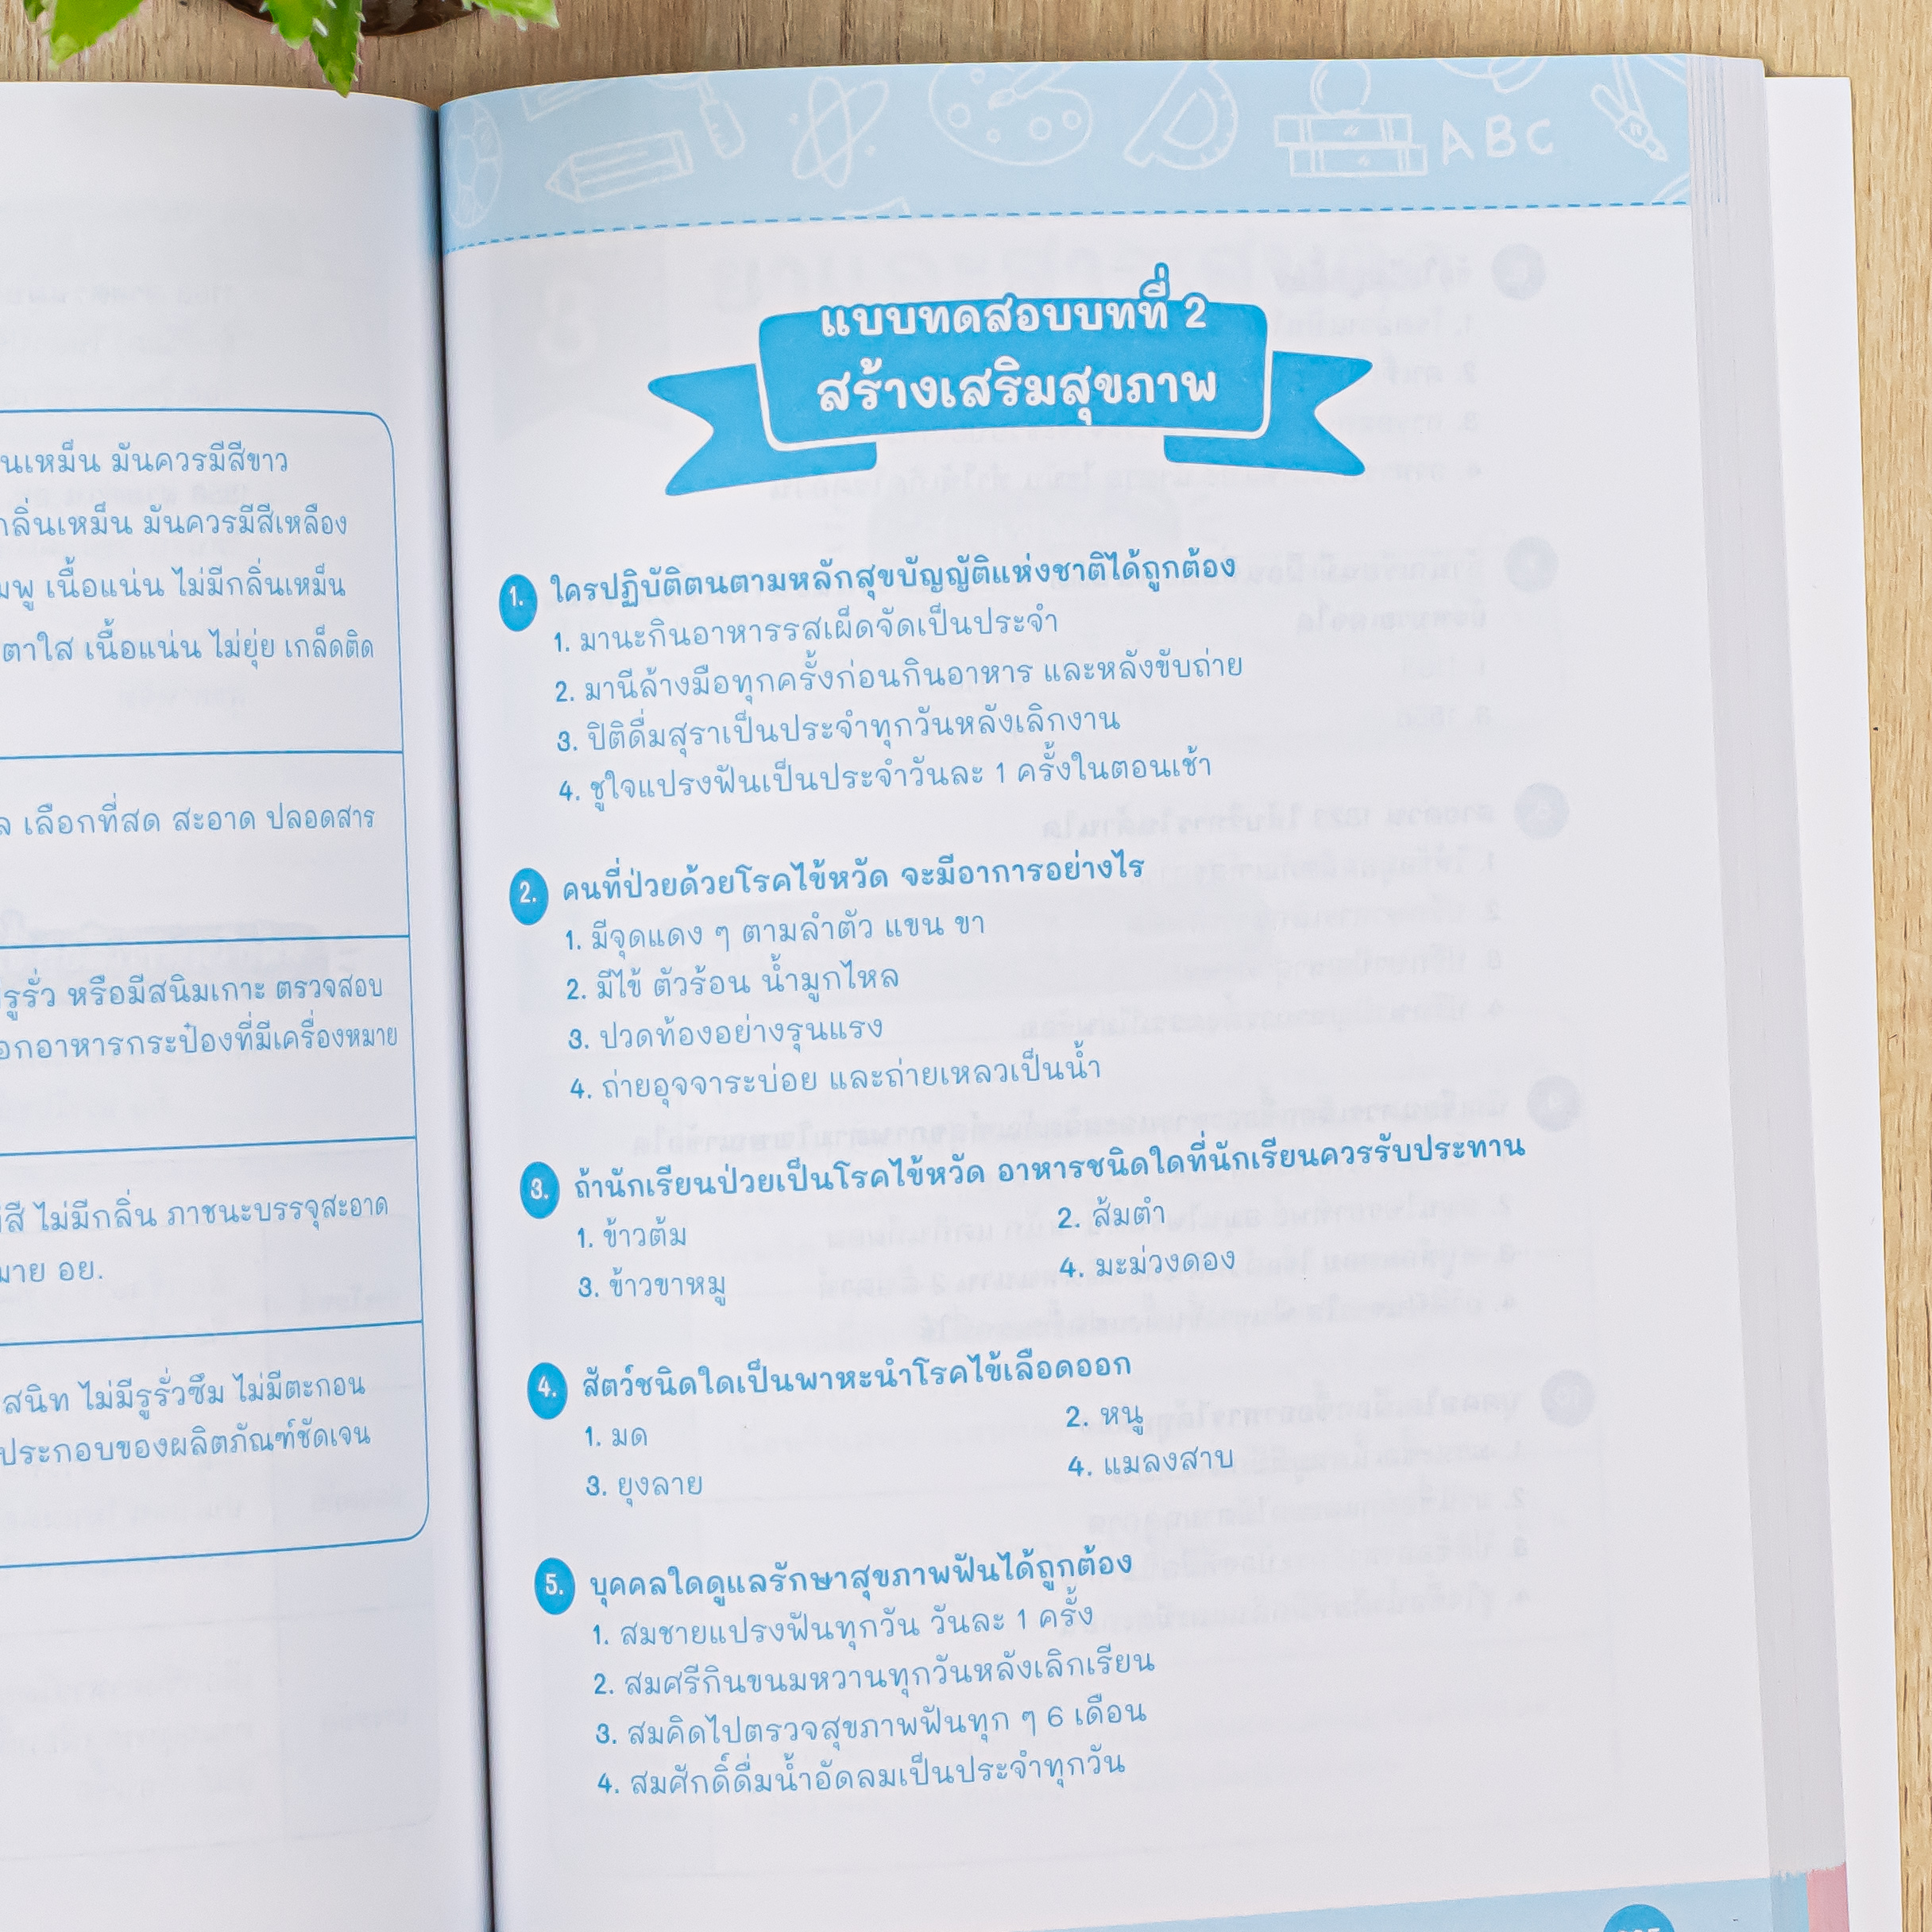 มันควรมีสีขาว
มันควรมีสีเหลือง
เนื้อแน่น ไม่มีกลิ่นเหม็น
ตาใส เนื้อแน่น ไม่ยุ่ย เกล็ดติด
เลือกที่สด สะอาด ปลอดสาร
หรือมีสนิมเกาะ ตรวจสอบ
ไม่มีกลิ่น ภาชนะบรรจุสะอาด
อย.
ไม่มีรูรั่วซึม ไม่มีตะกอน
ABC
แบบทดสอบบทที่ 2
สร้างเสริมสุขภาพ
1. ใครปฏิบัติตนตามหลักสุขบัญญัติแห่งชาติได้ถูกต้อง
1. มานะกินอาหารรสเผ็ดจัดเป็นประจำ
2. มานีล้างมือทุกครั้งก่อนกินอาหาร และหลังขับถ่าย
3. ปิติดื่มสุราเป็นประจำทุกวันหลังเลิกงาน
4. ชูใจแปรงฟันเป็นประจำวันละ 1 ครั้งในตอนเช้า
2. คนที่ป่วยด้วยโรคไข้หวัด จะมีอาการอย่างไร
1. มีจุดแดง ๆ ตามลำตัว แขน ขา
2. มีไข้ ตัวร้อน น้ำมูกไหล
3. ปวดท้องอย่างรุนแรง
4. ถ่ายอุจจาระบ่อย และถ่ายเหลวเป็นน้ำ
3. ถ้านักเรียนป่วยเป็นโรคไข้หวัด อาหารชนิดใดที่นักเรียนควรรับประทาน
1. ข้าวต้ม 2. ส้มตำ
3. ข้าวขาหมู 4. มะม่วงดอง
4. สัตว์ชนิดใดเป็นพาหะนำโรคไข้เลือดออก
1. มด 2. หนู
3. ยุงลาย 4. แมลงสาบ
5. บุคคลใดดูแลรักษาสุขภาพฟันได้ถูกต้อง
1. สมชายแปรงฟันทุกวัน วันละ 1 ครั้ง
2. สมศรีกินขนมหวานทุกวันหลังเลิกเรียน
3. สมคิดไปตรวจสุขภาพฟันทุก ๆ 6 เดือน
4. สมศักดิ์ดื่มน้ำอัดลมเป็นประจำทุกวัน